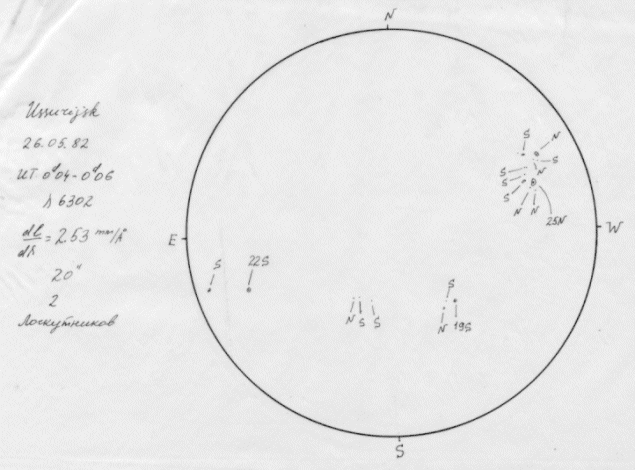 N
Ussurijsk
26.05.82
UT 0ʰ04-0ʰ06
λ 6302
dl/dλ = 2.53 mm/Å
20"
2
Лоскутников
S
N
S
N
S
S
S
N
N
25N
E
W
S
22S
S
N
S
S
N
19S
S